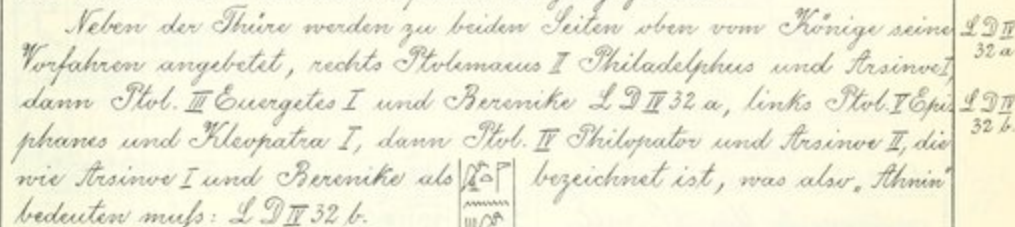 Neben der Thüre werden zu beiden Seiten oben vom Könige seine
Vorfahren angebetet, rechts Ptolemaeus II Philadelphus und Arsinoe I,
dann Ptol. III Euergetes I und Berenike L D IV 32 a, links Ptol. V Epi-
phanes und Kleopatra I, dann Ptol. IV Philopator und Arsinoe II, die
wie Arsinoe I und Berenike als bezeichnet ist, was also „Ahnin"
bedeuten muß: L D IV 32 b.
L D IV
32 a
L D IV
32 b.